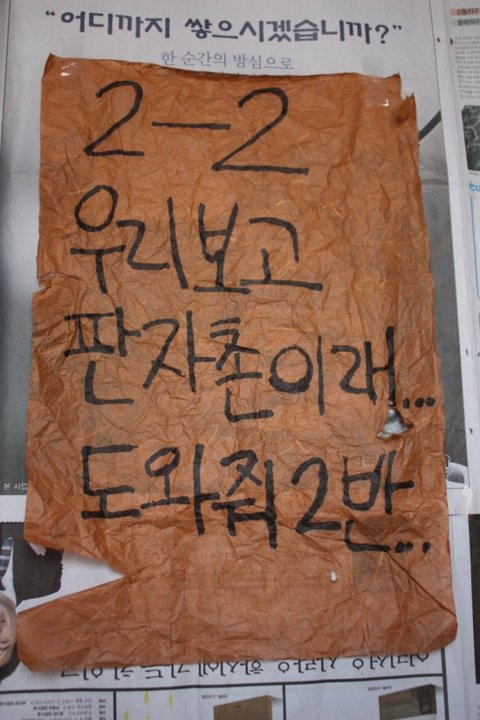 “어디까지 쌓으시겠습니까?”
한 순간의 방심으로
2-2
우리보고
판자촌이래...
도와줘 2반...
본 사업